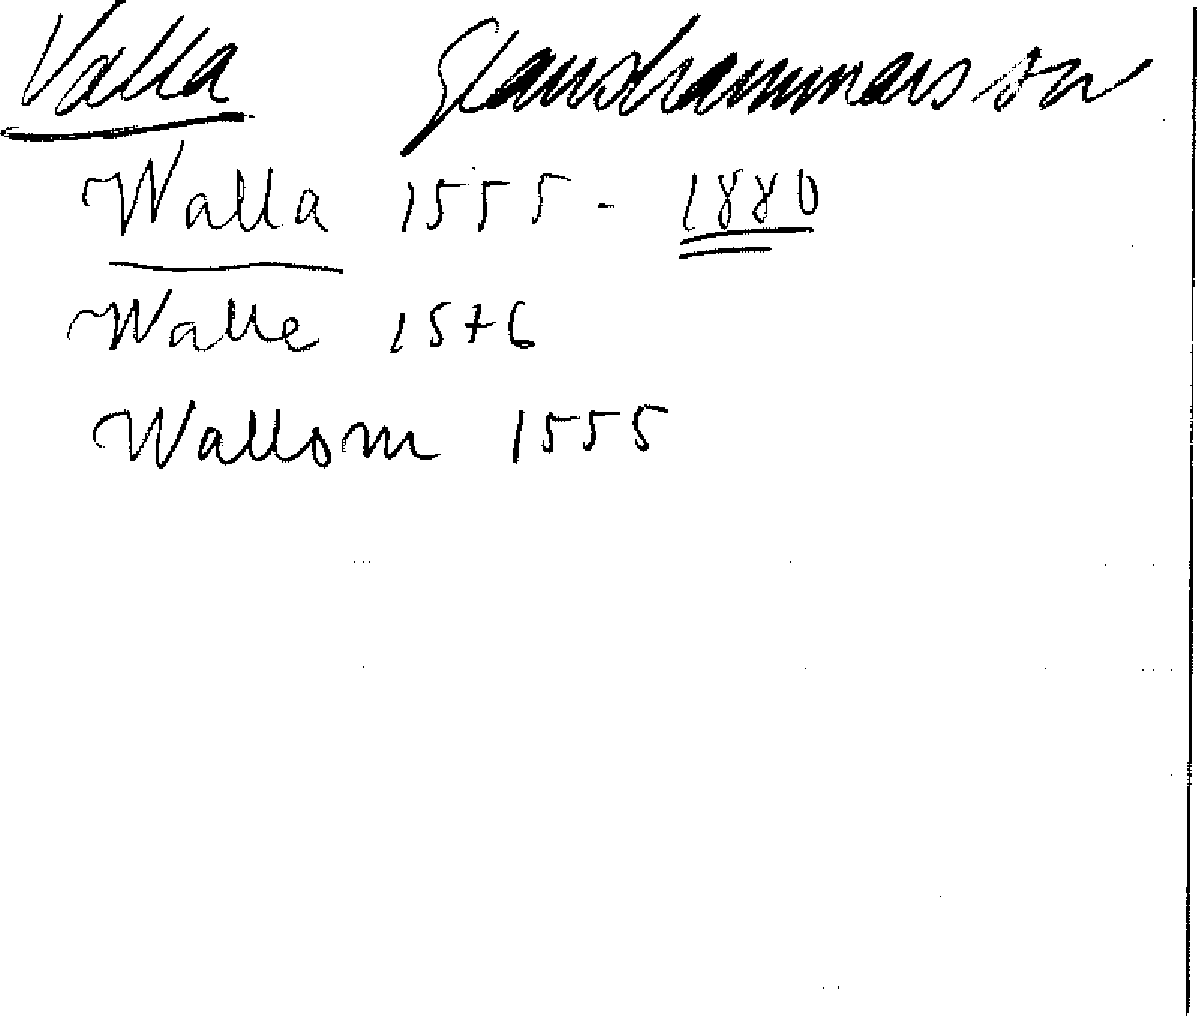 Valla Glanshammars sn
Walla 1555 - 1880
Walle 1576
Wallom 1555